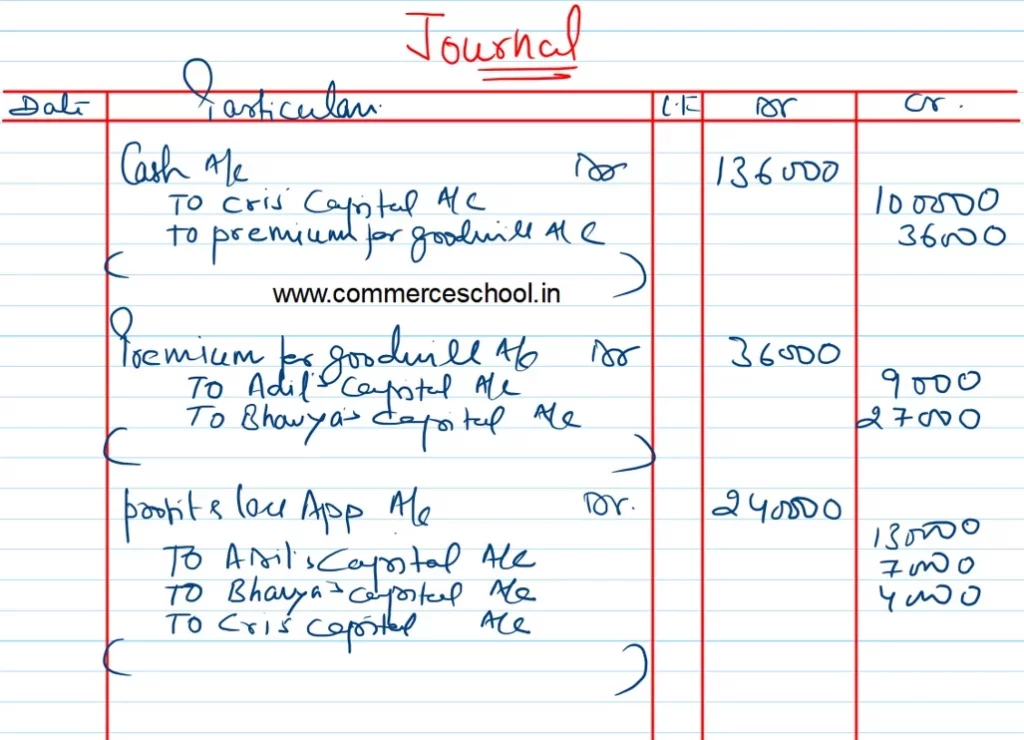 Journal
Date Particulars L.F Dr Cr.
Cash A/c Dr 136000
To Cris' Capital A/c 100000
To premium for goodwill A/c 36000
( )
www.commerceschool.in
Premium for goodwill A/c Dr 36000
To Adil's Capital A/c 9000
To Bhavya's Capital A/c 27000
( )
profit & loss App A/c Dr. 240000
To Adil's Capital A/c 130000
To Bhavya's capital A/c 70000
To Cris' capital A/c 40000
( )